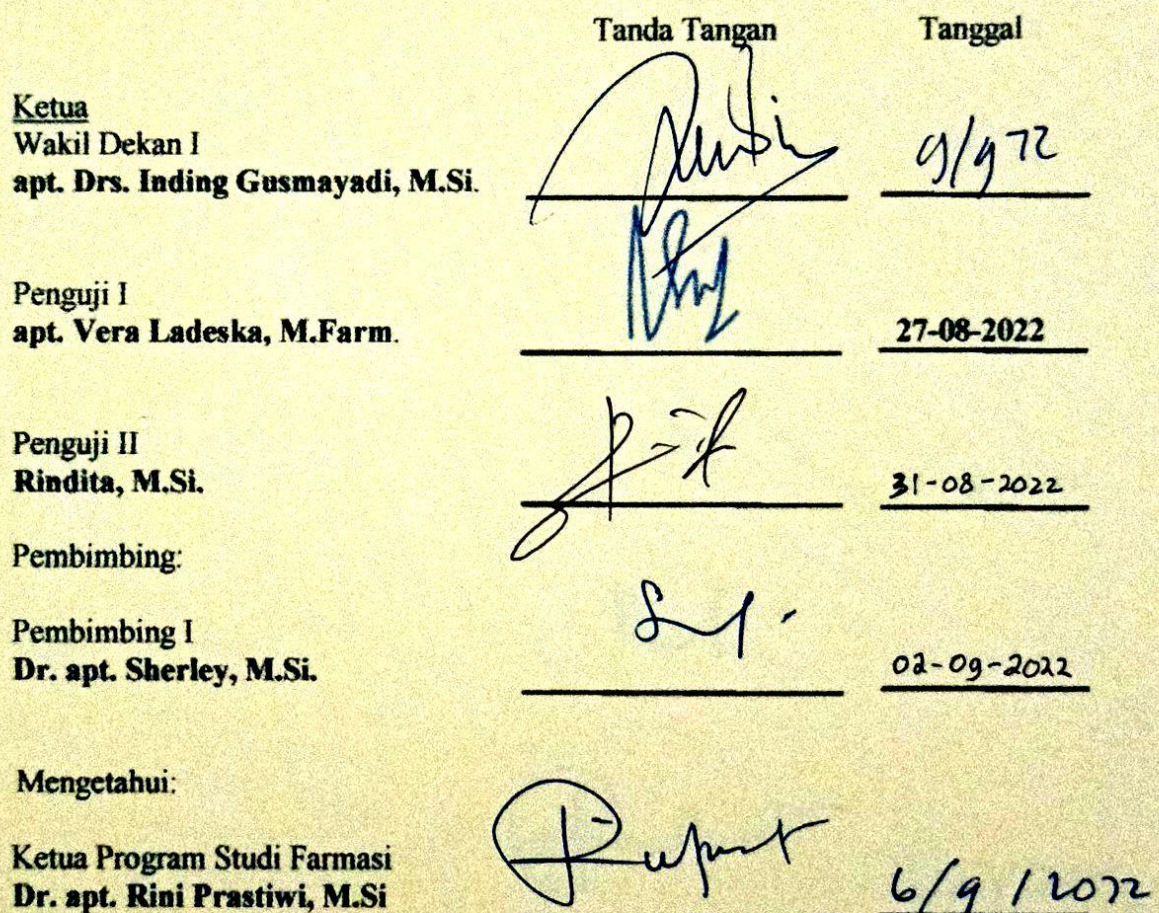 Tanda Tangan Tanggal
Ketua
Wakil Dekan I
apt. Drs. Inding Gusmayadi, M.Si. 9/9 22
Penguji I
apt. Vera Ladeska, M.Farm. 27-08-2022
Penguji II
Rindita, M.Si. 31-08-2022
Pembimbing:
Pembimbing I
Dr. apt. Sherley, M.Si. 02-09-2022
Mengetahui:
Ketua Program Studi Farmasi
Dr. apt. Rini Prastiwi, M.Si 6/9/2022